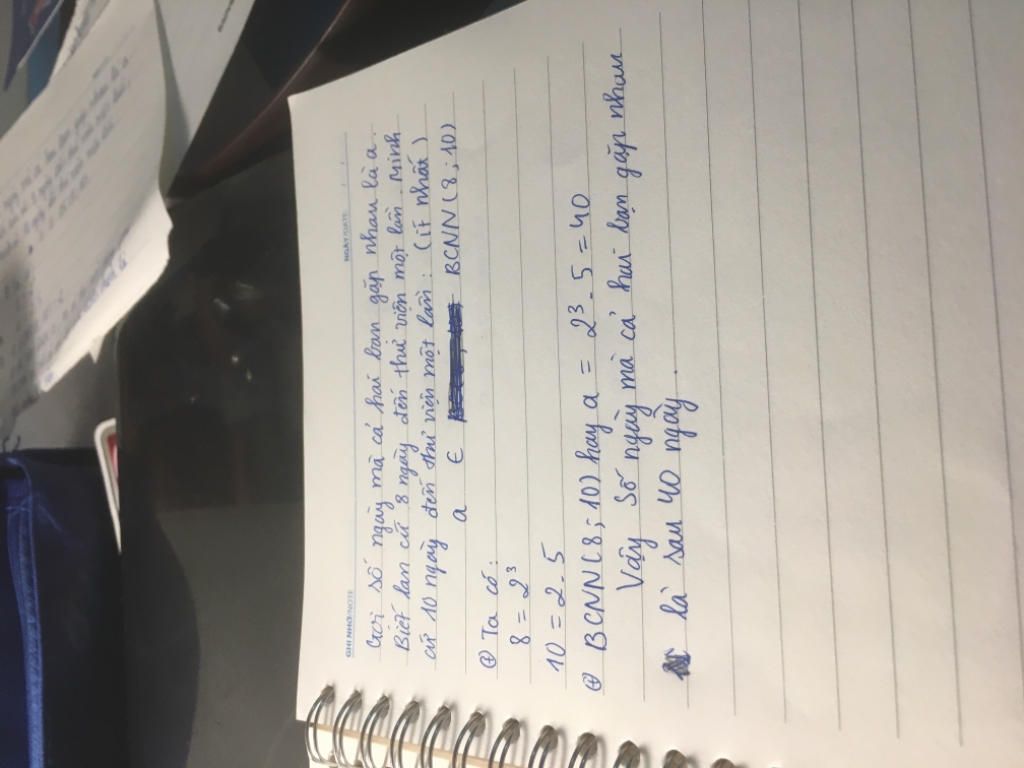 GHI NHỚ/NOTE
NGÀY/DATE
Gọi số ngày mà cả hai bạn gặp nhau là a.
Biết Lan cứ 8 ngày đến thư viện một lần. Minh
cứ 10 ngày đến thư viện một lần: (ít nhất)
a ∈ BCNN(8; 10)
⊕ Ta có:
8 = 2³
10 = 2.5
⊕ BCNN(8; 10) hay a = 2³.5 = 40
Vậy số ngày mà cả hai bạn gặp nhau
là sau 40 ngày.